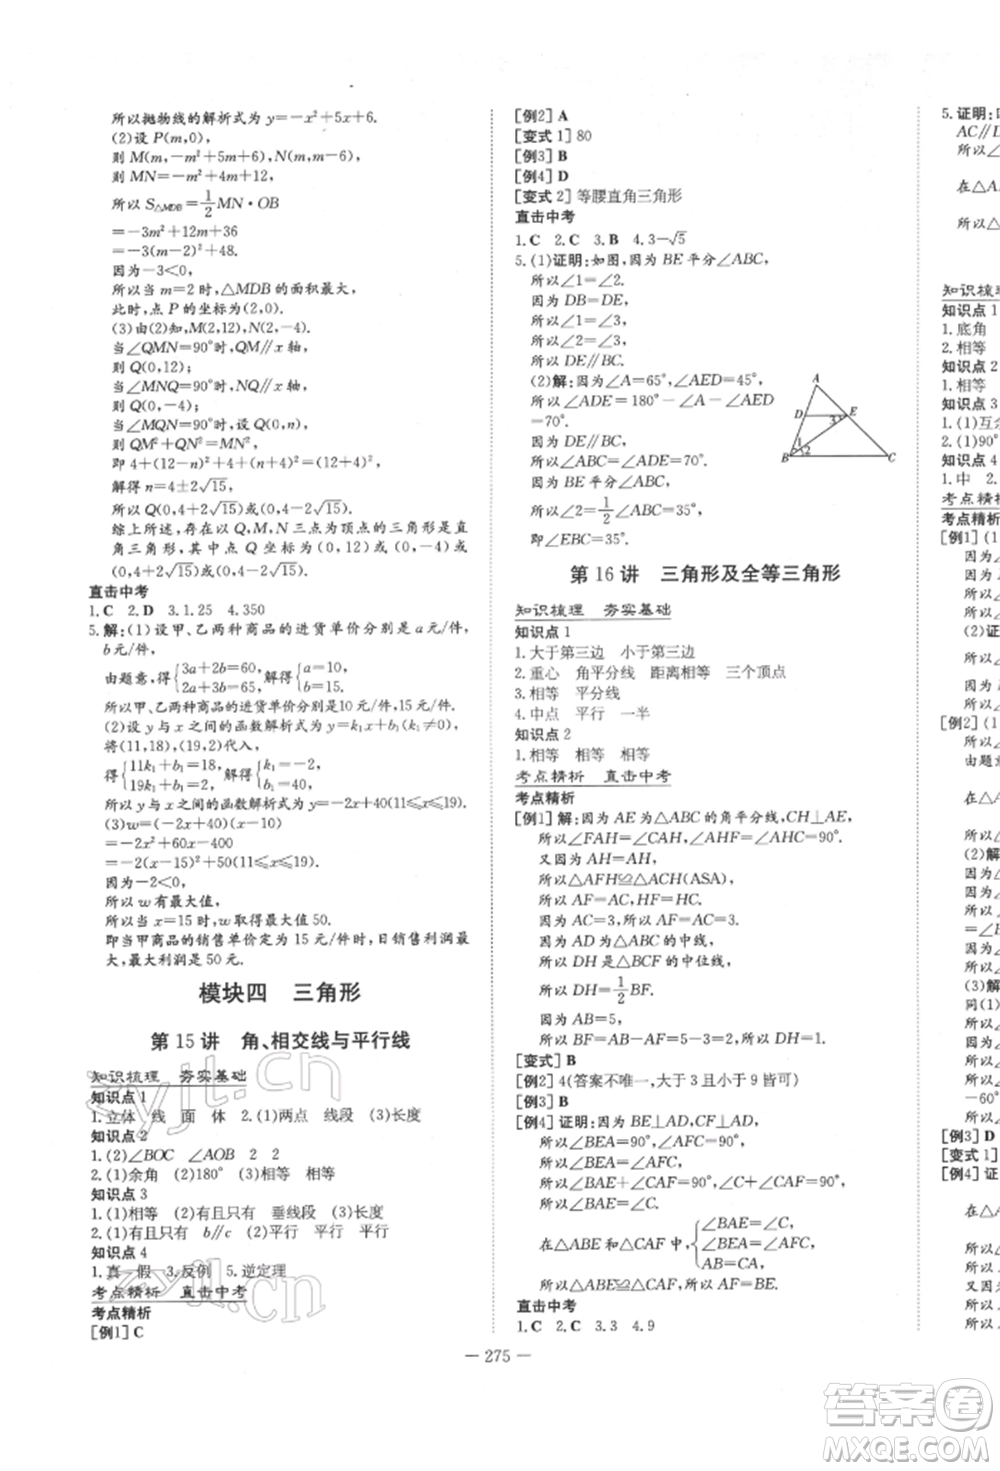 所以抛物线的解析式为 y=-x²+5x+6.
(2)设 P(m,0),
则 M(m,-m²+5m+6),N(m,-m+6),
则 MN=-m²+6m,
所以 S△MDB=1/2MN·OB
=-3m²+12m+36
=-3(m-2)²+48.
因为-3<0,
所以当 m=2 时,△MDB 的面积最大,
此时,点 P 的坐标为(2,0).
(3)由(2)知,M(2,12),N(2,-4).
当∠QMN=90°时,QM∥x 轴,
则 Q(0,12);
当∠MNQ=90°时,NQ∥x 轴,
则 Q(0,-4);
当∠MQN=90°时,设 Q(0,n),
则 QM²+QN²=MN²,
即 4+(12-n)²+4+(n+4)²=(12+4)²,
解得 n=4±2√15,
所以 Q(0,4+2√15)或(0,4-2√15).
综上所述,存在以 Q,M,N 三点为顶点的三角形是直
角三角形,其中点 Q 坐标为(0,12)或(0,-4)或
(0,4+2√15)或(0,4-2√15).
直击中考
1.C 2.D 3.1.25 4.350
5.解:(1)设甲、乙两种商品的进货单价分别是 a 元/件,
b 元/件.
由题意,得{3a+2b=60, 2a+3b=65,解得{a=10, b=15.
所以甲、乙两种商品的进货单价分别是 10 元/件,15元/件.
(2)设 y 与 x 之间的函数解析式为 y=k₁x+b₁(k₁≠0),
将(11,18),(19,2)代入,
得{11k₁+b₁=18, 19k₁+b₁=2,解得{k₁=-2, b₁=40.
所以 y 与 x 之间的函数解析式为 y=-2x+40.
(3)w=(-2x+40)(x-10)
=-2x²+60x-400
=-2(x-15)²+50(11≤x≤19).
因为-2<0,
所以 w 有最大值,
所以当 x=15 时,w 取得最大值 50.
即当甲商品的销售单价定为 15 元/件时,日销售利润最
大,最大利润是 50 元.
模块四 三角形
第 15 讲 角、相交线与平行线
知识梳理 夯实基础
知识点 1
1.立体 线 面 体 2.(1)两点 线段 (3)长度
知识点 2
1.(2)∠BOC ∠AOB 2 2
2.(1)余角 (2)180° 相等 相等
知识点 3
1.(1)相等 (2)有且只有 垂线段 (3)长度
2.(1)有且只有 b∥c (2)平行 平行 平行
知识点 4
1.真 假 3.反例 5.逆定理
考点精析 直击中考
考点精析
[例1] C
[例2] A
[变式 1] 80
[例3] B
[例4] D
[变式 2] 等腰直角三角形
直击中考
1.C 2.C 3.B 4.3-√5
5.(1)证明:如图,因为 BE 平分∠ABC,
所以∠1=∠2.
因为 DB=DE,
所以∠1=∠3,
所以∠2=∠3,
所以 DE∥BC.
(2)解:因为∠A=65°,∠AED=45°,
所以∠ADE=180°-∠A-∠AED
=70°.
因为 DE∥BC,
所以∠ABC=∠ADE=70°,
所以∠2=1/2∠ABC=35°,
即∠EBC=35°.
A
D E
3
1
2
B C
第 16 讲 三角形及全等三角形
知识梳理 夯实基础
知识点 1
1.大于第三边 小于第三边
2.重心 角平分线 距离相等 三个顶点
3.相等 平分线
4.中点 平行 一半
知识点 2
1.相等 相等 相等
考点精析 直击中考
考点精析
[例1] 解:因为 AE 为△ABC 的角平分线,CH⊥AE,
所以∠FAH=∠CAH,∠AHF=∠AHC=90°.
又因为 AH=AH,
所以△AFH≌△ACH(ASA),
所以 AF=AC,HF=HC.
因为 AC=3,所以 AF=AC=3,
因为 AD 为△ABC 的中线,
所以 DH 是△BCF 的中位线,
所以 DH=1/2BF.
因为 AB=5,
所以 BF=AB-AF=5-3=2,所以 DH=1.
[变式] B
[例2] 4(答案不唯一,大于 3 且小于 9 皆可)
[例3] B
[例4] 证明:因为 BE⊥AD,CF⊥AD,
所以∠BEA=90°,∠CFA=90°,
所以∠BEA=∠CFA.
因为∠BAE+∠CAF=90°,∠C+∠CAF=90°,
所以∠BAE=∠C.
在△ABE 和△CAF 中,{∠BAE=∠C, ∠BEA=∠CFA, AB=CA,
所以△ABE≌△CAF,所以 AF=BE.
直击中考
1.C 2.C 3.3 4.9
5.证明:
AC∥D
所以∠
在△A
所以△
知识梳理
知识点 1
1.底角
2.相等
知识点 2
1.相等
知识点 3
1.(1)互余
2.(1)90°
知识点 4
1.中 2.
考点精析
考点精析
[例1] (1
因为
因为
所以
所以
所以
(2)证
所以
因为
所以
[例2] (1
因为
由题
在△A
所以
(2)解
所以
因为
所以
=90°
所以
(3)解
因为
所以
所以
所以
-60°
=
[例3] D
[变式 1]
[例4] 证
在△A
所以
所以
在△
所以
所以
— 275 —
zyjl.cn
zyjl.cn
答案圈
MXQE.COM